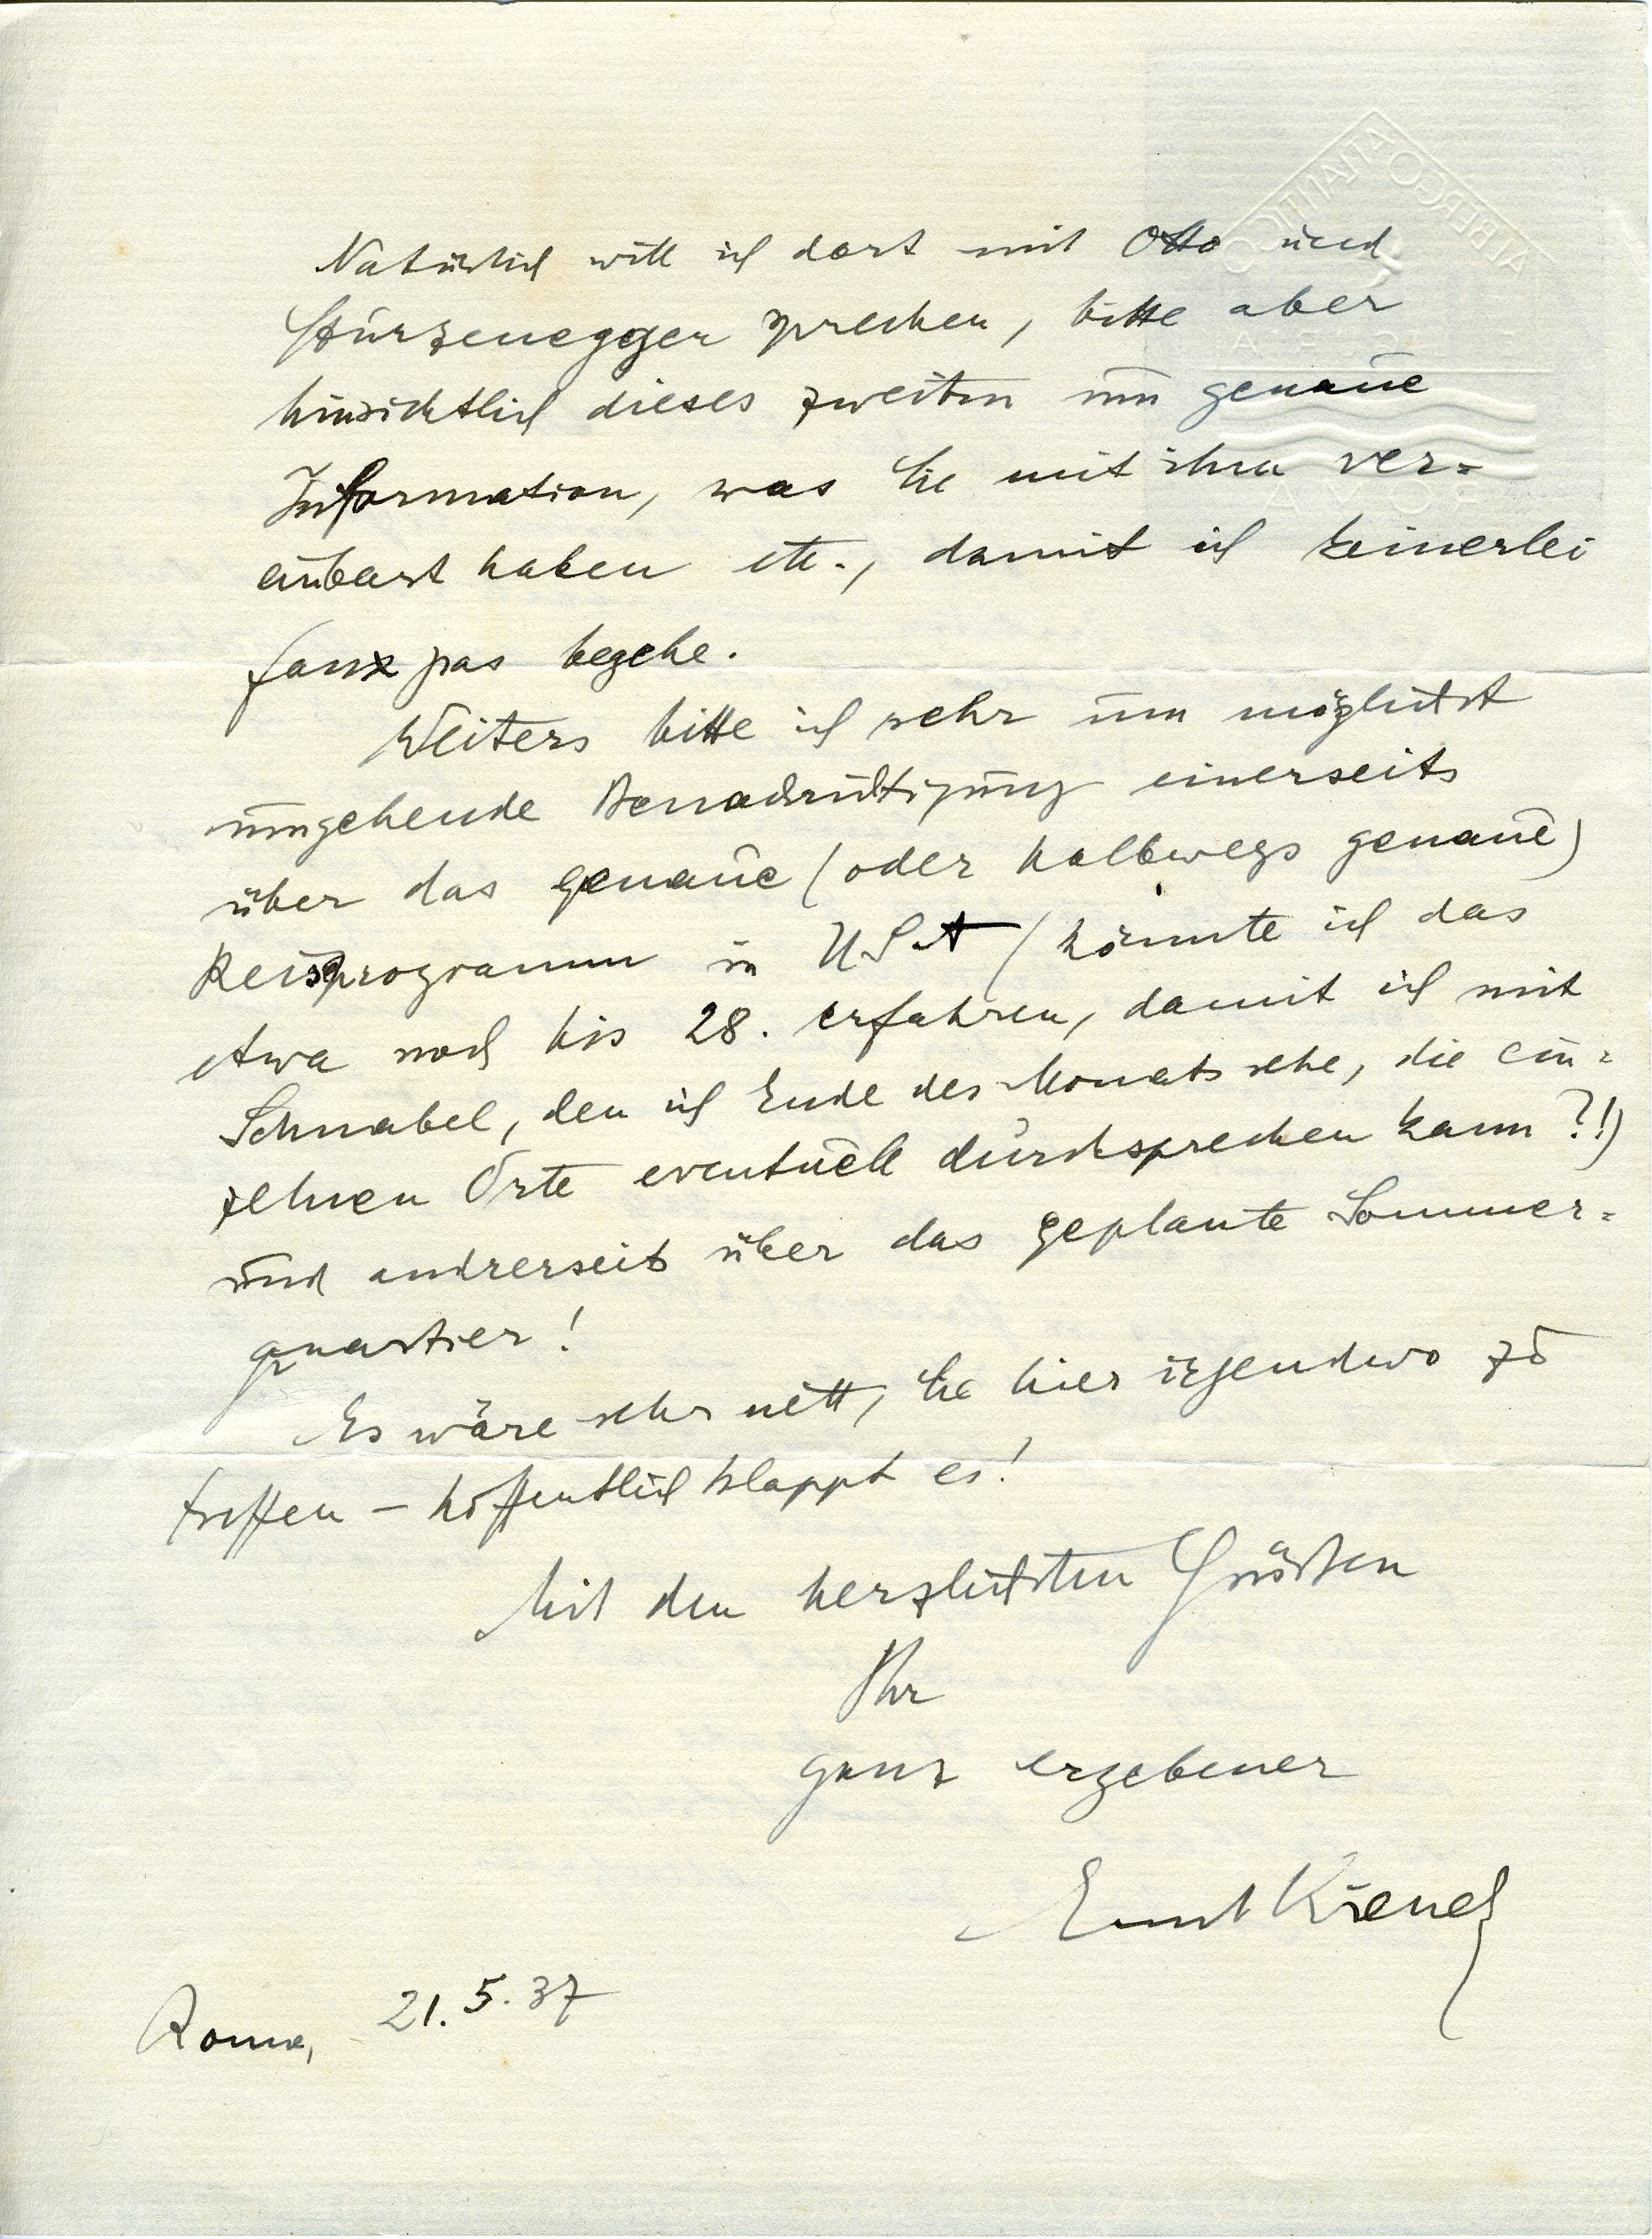 Natürlich will ich dort mit Otto und
Stürzenegger sprechen, bitte aber
hinsichtlich dieses zweiten um genaue
Information, was Sie mit ihm ver=
einbart haben etc., damit ich keinerlei
faux pas begehe.
Weiters bitte ich sehr um möglichst
umgehende Benachrichtigung einerseits
über das genaue (oder halbwegs genaue)
Reiseprogramm in USA (könnte ich das
etwa noch bis 28. erfahren, damit ich mit
Schnabel, den ich Ende des Monats sehe, die ein=
zelnen Orte eventuell durchsprechen kann?!)
und andrerseits über das geplante Sommer=
quartier!
Es wäre sehr nett, Sie hier irgendwo zu
treffen – hoffentlich klappt es!
Mit den herzlichsten Grüßen
Ihr
ganz ergebener
Ernst Krenek
Roma, 21.5.37
ALBERGO ATLANTICO